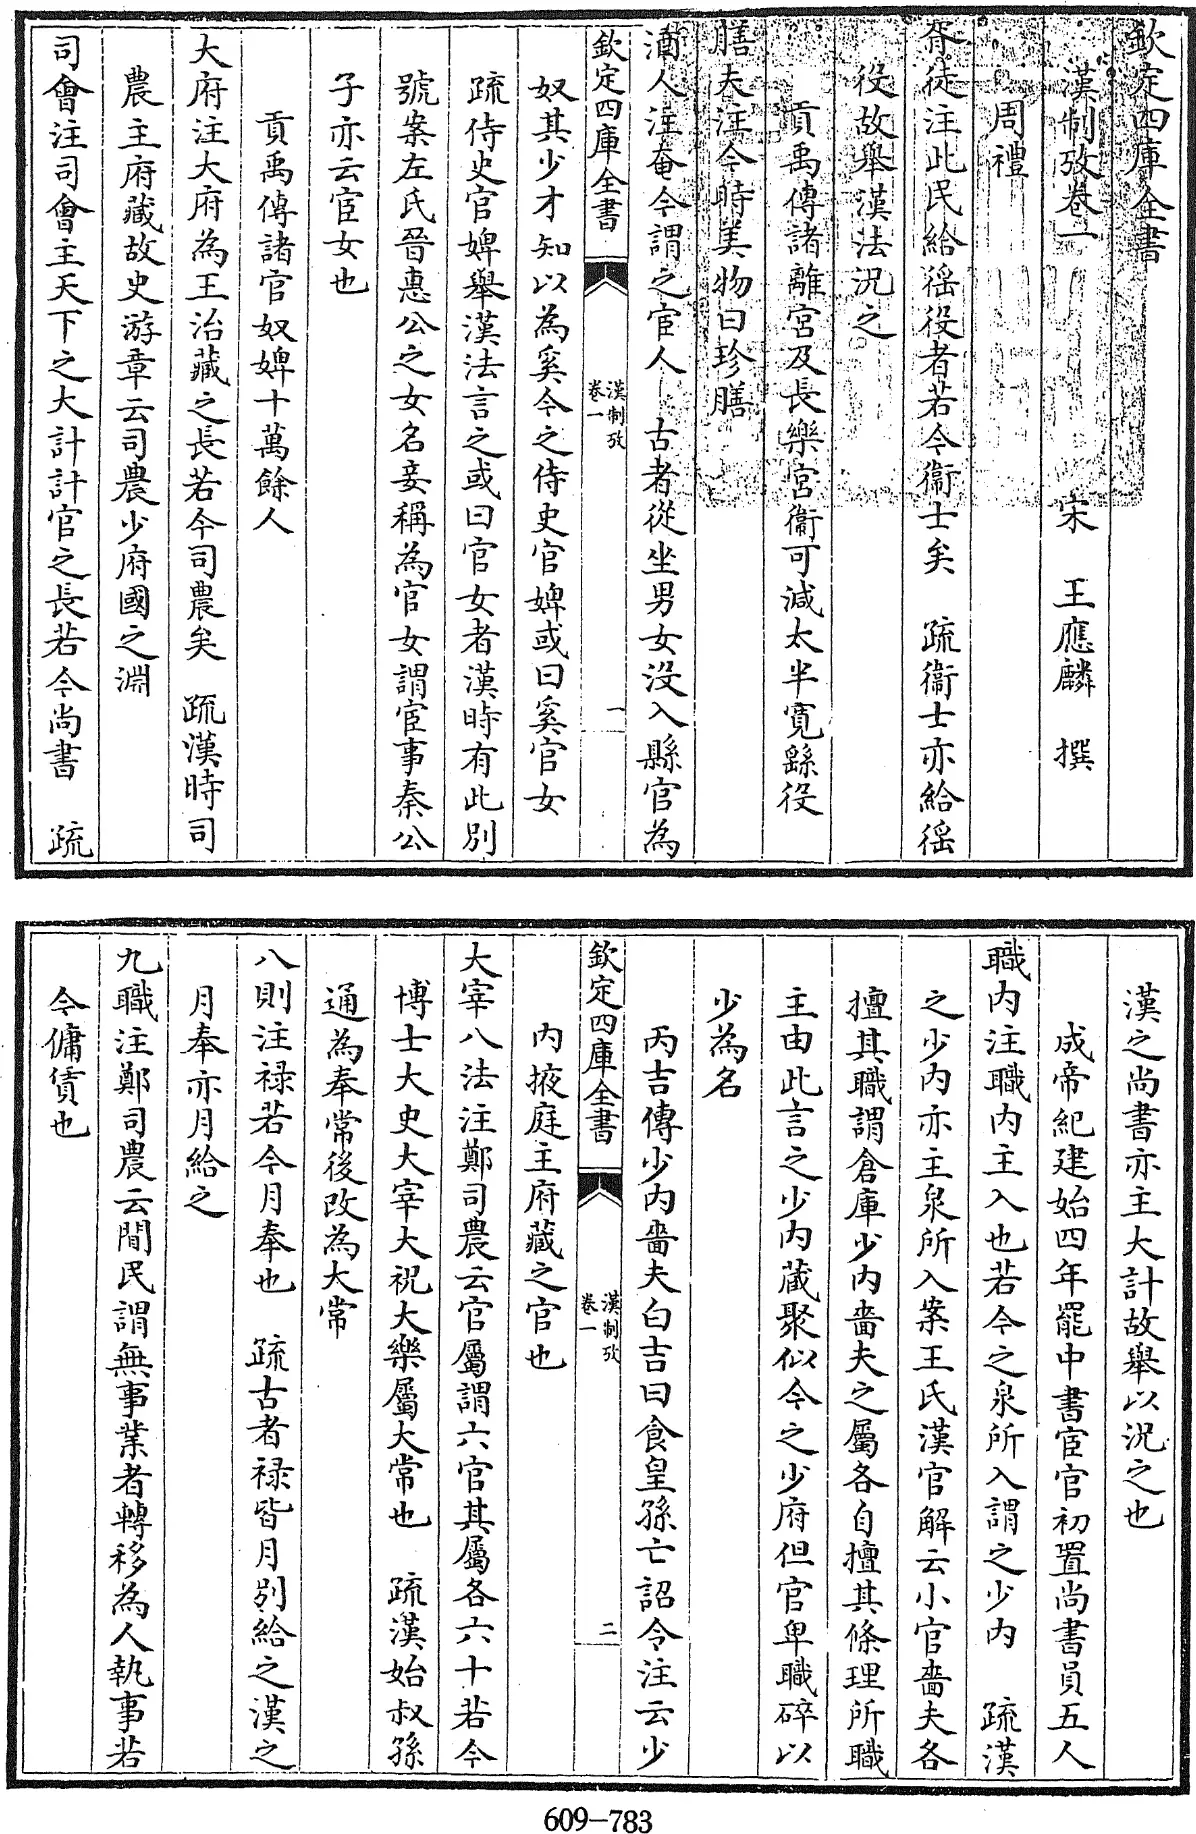 欽定四庫全書
漢制攷卷一
宋 王應麟 撰
周禮
胥徒注此民給徭役者若今衞士矣 疏衞士亦給徭
役故舉漢法況之
貢禹傳諸離宮及長樂宮衞可減太半寛繇役
膳夫注今時美物曰珍膳
酒人注奄今謂之宦人 古者從坐男女没入縣官為
欽定四庫全書
漢制攷
卷一
一
奴其少才知以為奚今之侍史官婢或曰奚官女
疏侍史官婢舉漢法言之或曰官女者漢時有此别
號案左氏晉惠公之女名妾稱為宦女謂宦事秦公
子亦云宦女也
貢禹傳諸官奴婢十萬餘人
大府注大府為王治藏之長若今司農矣 疏漢時司
農主府藏故史游章云司農少府國之淵
司會注司會主天下之大計計官之長若今尚書 疏
漢之尚書亦主大計故舉以況之也
成帝紀建始四年罷中書宦官初置尚書員五人
職内注職内主入也若今之泉所入謂之少内 疏漢
之少内亦主泉所入案王氏漢官解云小官嗇夫各
擅其職謂倉庫少内嗇夫之屬各自擅其條理所職
主由此言之少内藏聚似今之少府但官卑職碎以
少為名
丙吉傳少内嗇夫白吉曰食皇孫亡詔令注云少
欽定四庫全書
漢制攷
卷一
二
内掖庭主府藏之官也
大宰八法注鄭司農云官屬謂六官其屬各六十若今
博士大史大宰大祝大樂屬大常也 疏漢始叔孫
通為奉常後改為太常
八則注禄若今月奉也 疏古者禄皆月别給之漢之
月奉亦月給之
九職注鄭司農云閒民謂無事業者轉移為人執事若
今傭賃也
609-783